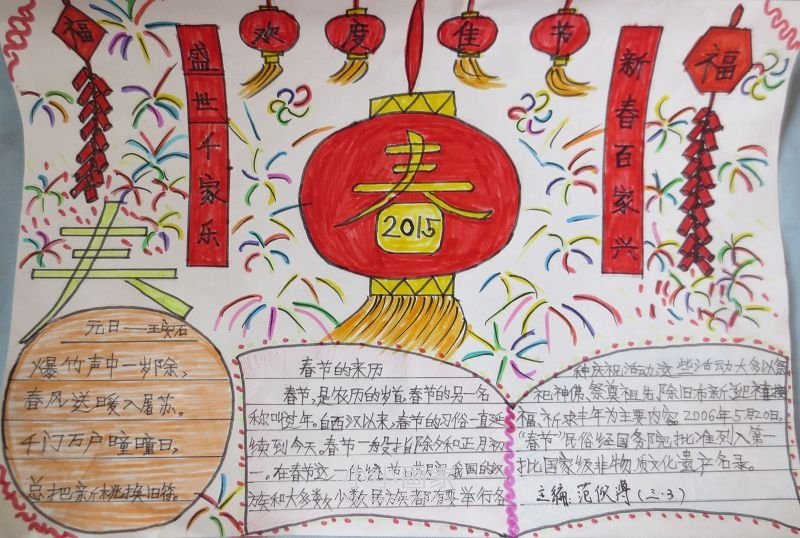 欢度佳节
福
福
盛世千家乐
新春百家兴
春
2015
春
元日——王安石
爆竹声中一岁除，
春风送暖入屠苏。
千门万户曈曈日，
总把新桃换旧符。
春节的来历
春节，是农历的岁首，春节的另一名
称叫过年。自西汉以来，春节的习俗一直延
续到今天。春节一般指除夕和正月初
一。在春节这一传统节日 我国的汉
族和大多数少数民族都有要举行各
种庆祝活动，这些活动大多以祭
祀神佛、祭奠祖先、除旧布新、迎禧接
福、祈求丰年为主要内容。2006年5月20日，
“春节”民俗经国务院批准列入第一
批国家级非物质文化遗产名录。
主编：范 (三·3)